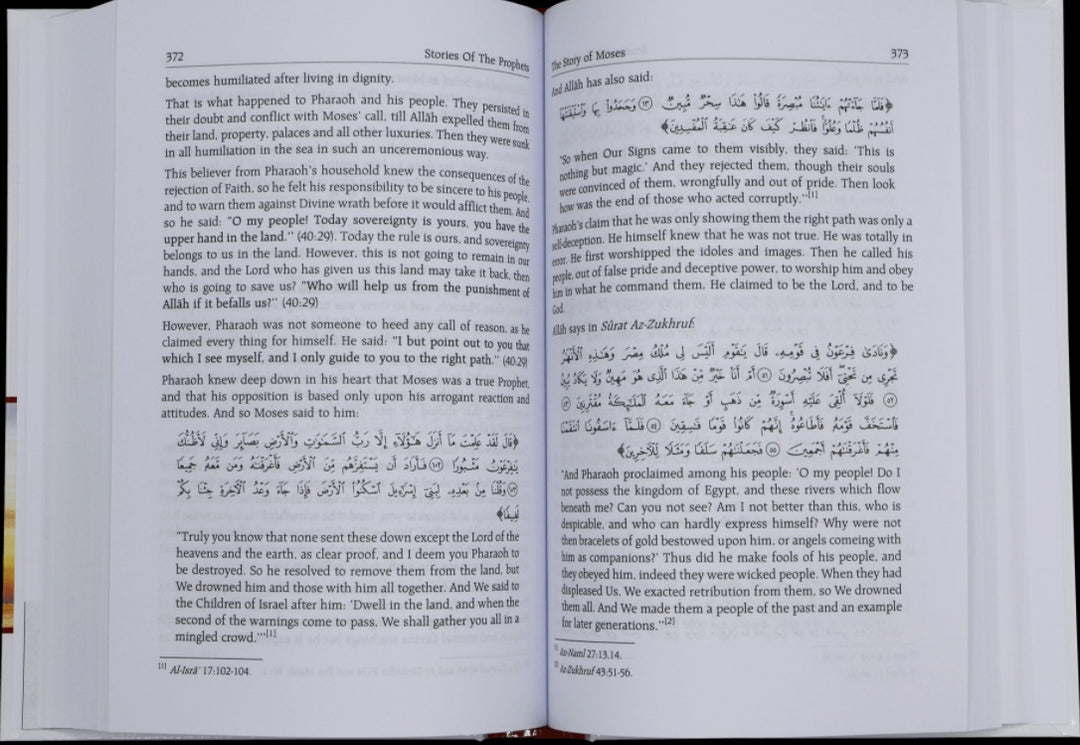 372
Stories Of The Prophets
becomes humiliated after living in dignity.
That is what happened to Pharaoh and his people. They persisted in
their doubt and conflict with Moses' call, till Allāh expelled them from
their land, property, palaces and all other luxuries. Then they were sunk
in all humiliation in the sea in such an unceremonious way.
This believer from Pharaoh's household knew the consequences of the
rejection of Faith, so he felt his responsibility to be sincere to his people,
and to warn them against Divine wrath before it would afflict them. And
so he said: "O my people! Today sovereignty is yours, you have the
upper hand in the land." (40:29). Today the rule is ours, and sovereignty
belongs to us in the land. However, this is not going to remain in our
hands, and the Lord who has given us this land may take it back, then
who is going to save us? "Who will help us from the punishment of
Allāh if it befalls us?" (40:29)
However, Pharaoh was not someone to heed any call of reason, as he
claimed every thing for himself. He said: "I but point out to you that
which I see myself, and I only guide to you to the right path." (40:29)
Pharaoh knew deep down in his heart that Moses was a true Prophet,
and that his opposition is based only upon his arrogant reaction and
attitudes. And so Moses said to him:
﴿قَالَ لَقَدْ عَلِمْتَ مَآ أَنزَلَ هَٰٓؤُلَآءِ إِلَّا رَبُّ ٱلسَّمَٰوَٰتِ وَٱلْأَرْضِ بَصَآئِرَ وَإِنِّى لَأَظُنُّكَ
يَٰفِرْعَوْنُ مَثْبُورًا ١٠٢ فَأَرَادَ أَن يَسْتَفِزَّهُم مِّنَ ٱلْأَرْضِ فَأَغْرَقْنَٰهُ وَمَن مَّعَهُۥ جَمِيعًا
١٠٣ وَقُلْنَا مِنۢ بَعْدِهِۦ لِبَنِىٓ إِسْرَٰٓءِيلَ ٱسْكُنُوا۟ ٱلْأَرْضَ فَإِذَا جَآءَ وَعْدُ ٱلْءَاخِرَةِ جِئْنَا بِكُمْ
لَفِيفًا﴾
"Truly you know that none sent these down except the Lord of the
heavens and the earth, as clear proof, and I deem you Pharaoh to
be destroyed. So he resolved to remove them from the land, but
We drowned him and those with him all together. And We said to
the Children of Israel after him: 'Dwell in the land, and when the
second of the warnings come to pass, We shall gather you all in a
mingled crowd.'"[1]
[1] Al-Isrā' 17:102-104.
The Story of Moses
373
And Allāh has also said:
﴿فَلَمَّا جَآءَتْهُمْ ءَايَٰتُنَا مُبْصِرَةً قَالُوا۟ هَٰذَا سِحْرٌ مُّبِينٌ ١٣ وَجَحَدُوا۟ بِهَا وَٱسْتَيْقَنَتْهَآ
أَنفُسُهُمْ ظُلْمًا وَعُلُوًّا فَٱنظُرْ كَيْفَ كَانَ عَٰقِبَةُ ٱلْمُفْسِدِينَ﴾
"So when Our Signs came to them visibly, they said: 'This is
nothing but magic.' And they rejected them, though their souls
were convinced of them, wrongfully and out of pride. Then look
how was the end of those who acted corruptly."[1]
Pharaoh's claim that he was only showing them the right path was only a
self-deception. He himself knew that he was not true. He was totally in
error. He first worshipped the idoles and images. Then he called his
people, out of false pride and deceptive power, to worship him and obey
him in what he command them. He claimed to be the Lord, and to be
God.
Allāh says in Sûrat Az-Zukhruf:
﴿وَنَادَىٰ فِرْعَوْنُ فِى قَوْمِهِۦ قَالَ يَٰقَوْمِ أَلَيْسَ لِى مُلْكُ مِصْرَ وَهَٰذِهِ ٱلْأَنْهَٰرُ
تَجْرِى مِن تَحْتِىٓ أَفَلَا تُبْصِرُونَ ٥١ أَمْ أَنَا۠ خَيْرٌ مِّنْ هَٰذَا ٱلَّذِى هُوَ مَهِينٌ وَلَا يَكَادُ يُبِينُ
٥٢ فَلَوْلَآ أُلْقِىَ عَلَيْهِ أَسْوِرَةٌ مِّن ذَهَبٍ أَوْ جَآءَ مَعَهُ ٱلْمَلَٰٓئِكَةُ مُقْتَرِنِينَ ٥٣
فَٱسْتَخَفَّ قَوْمَهُۥ فَأَطَاعُوهُ إِنَّهُمْ كَانُوا۟ قَوْمًا فَٰسِقِينَ ٥٤ فَلَمَّآ ءَاسَفُونَا ٱنتَقَمْنَا
مِنْهُمْ فَأَغْرَقْنَٰهُمْ أَجْمَعِينَ ٥٥ فَجَعَلْنَٰهُمْ سَلَفًا وَمَثَلًا لِّلْءَاخِرِينَ﴾
"And Pharaoh proclaimed among his people: 'O my people! Do I
not possess the kingdom of Egypt, and these rivers which flow
beneath me? Can you not see? Am I not better than this, who is
despicable, and who can hardly express himself? Why were not
then bracelets of gold bestowed upon him, or angels comeing with
him as companions?' Thus did he make fools of his people, and
they obeyed him, indeed they were wicked people. When they had
displeased Us, We exacted retribution from them, so We drowned
them all. And We made them a people of the past and an example
for later generations."[2]
[1] An-Naml 27:13,14.
[2] Az-Zukhruf 43:51-56.